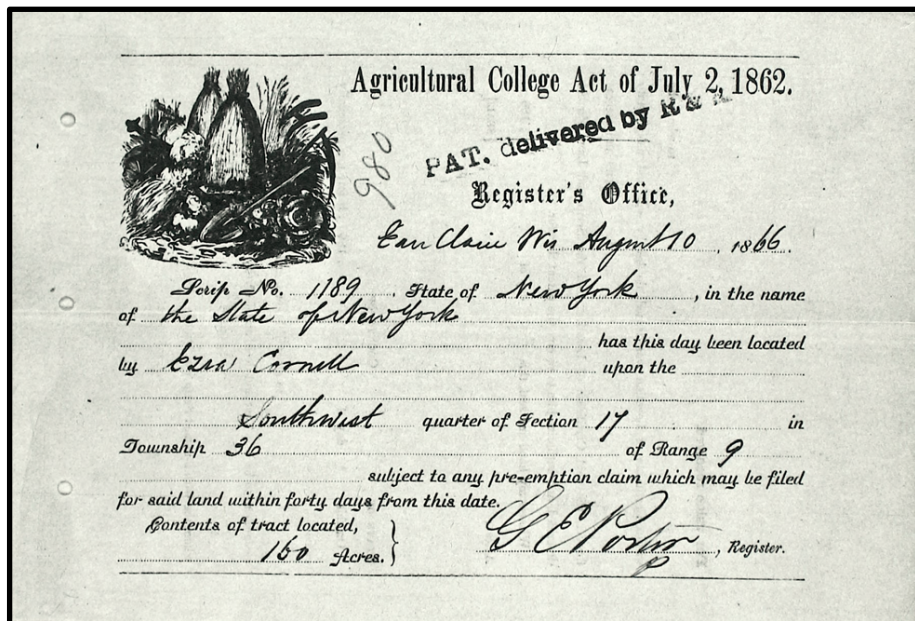 Agricultural College Act of July 2, 1862.
PAT. delivered by R &
980
Register's Office,
Eau Claire Wis August 10, 1866.
Scrip No. 1189, State of New York, in the name
of the State of New York
has this day been located
by Ezra Cornell upon the
Southwest quarter of Section 17 in
Township 36 of Range 9
subject to any pre-emption claim which may be filed
for said land within forty days from this date.
Contents of tract located,
160 Acres. } G E Porter, Register.